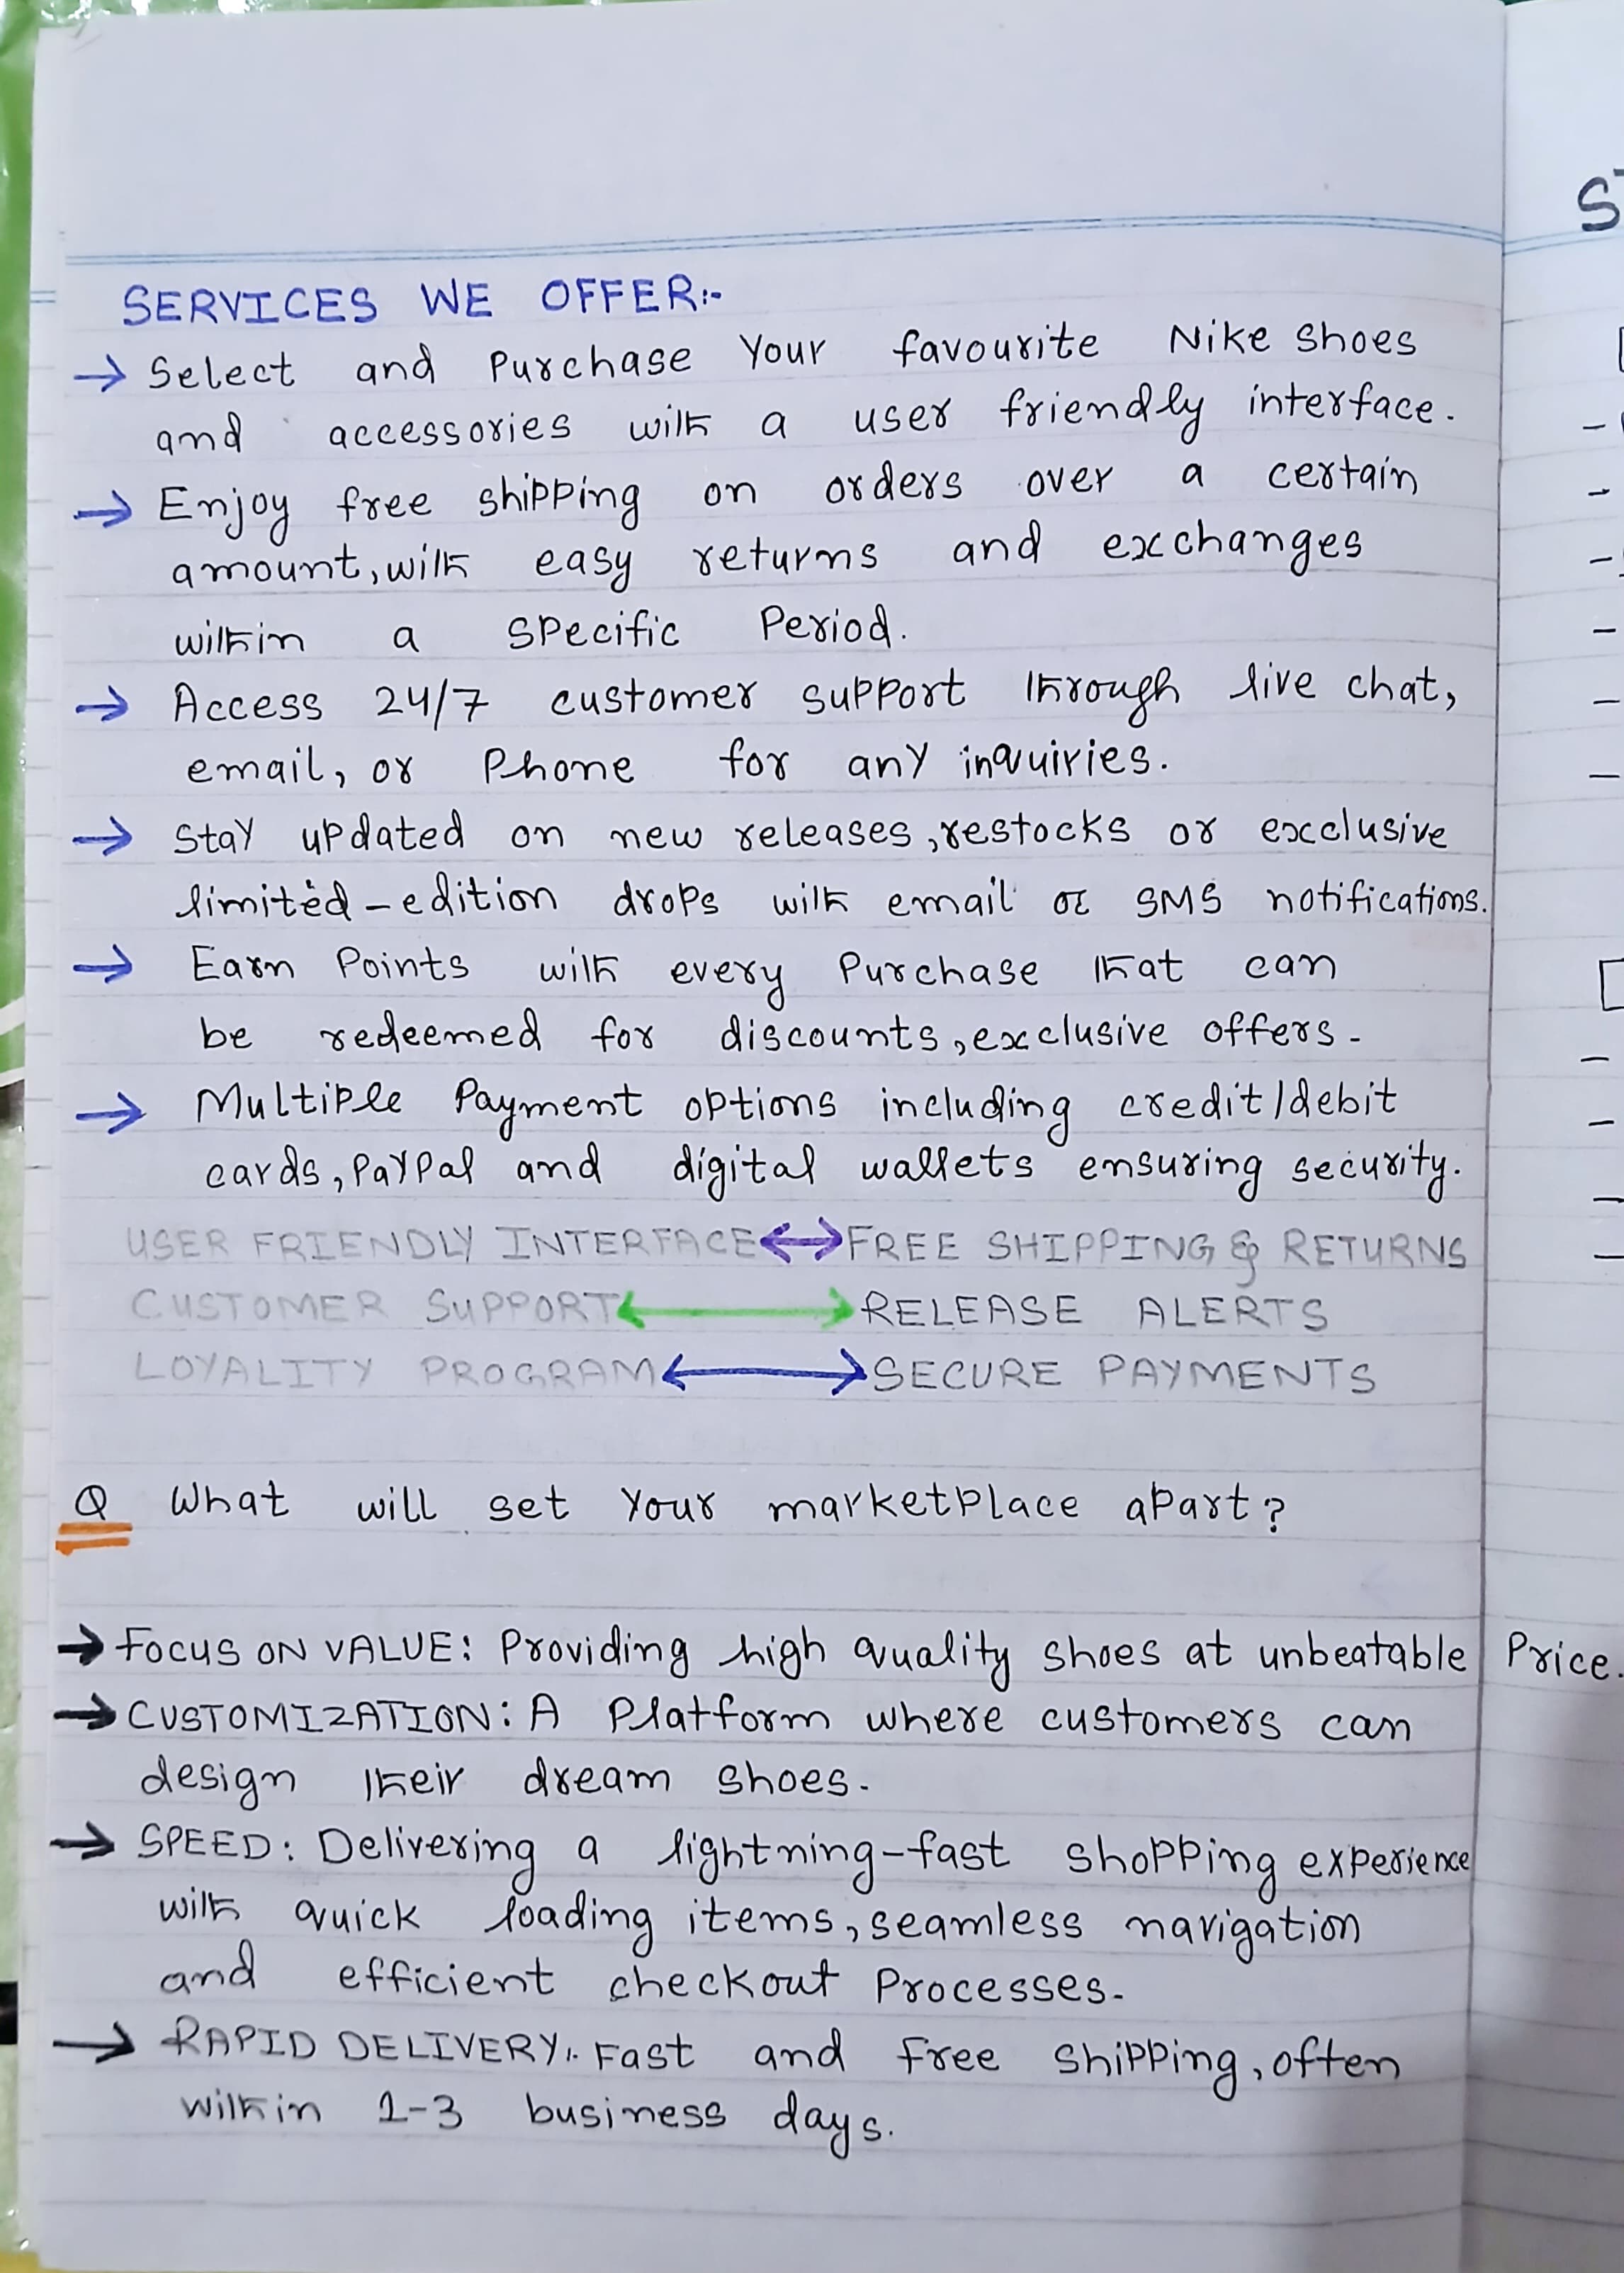 SERVICES WE OFFER:-
→ Select and Purchase Your favourite Nike shoes
and accessories with a user friendly interface.
→ Enjoy free shipping on orders over a certain
amount, with easy returns and exchanges
within a specific Period.
→ Access 24/7 customer support through live chat,
email, or Phone for any inquiries.
→ Stay updated on new releases, restocks or exclusive
limited-edition drops with email or SMS notifications.
→ Earn Points with every Purchase that can
be redeemed for discounts, exclusive offers.
→ Multiple Payment options including credit/debit
cards, PayPal and digital wallets ensuring security.
USER FRIENDLY INTERFACE ↔ FREE SHIPPING & RETURNS
CUSTOMER SUPPORT ↔ RELEASE ALERTS
LOYALITY PROGRAM ↔ SECURE PAYMENTS
Q What will set Your marketplace apart?
→ FOCUS ON VALUE: Providing high quality shoes at unbeatable Price.
→ CUSTOMIZATION: A Platform where customers can
design their dream shoes.
→ SPEED: Delivering a lightning-fast shopping experience
with quick loading items, seamless navigation
and efficient checkout Processes.
→ RAPID DELIVERY:. Fast and free shipping, often
within 1-3 business days.